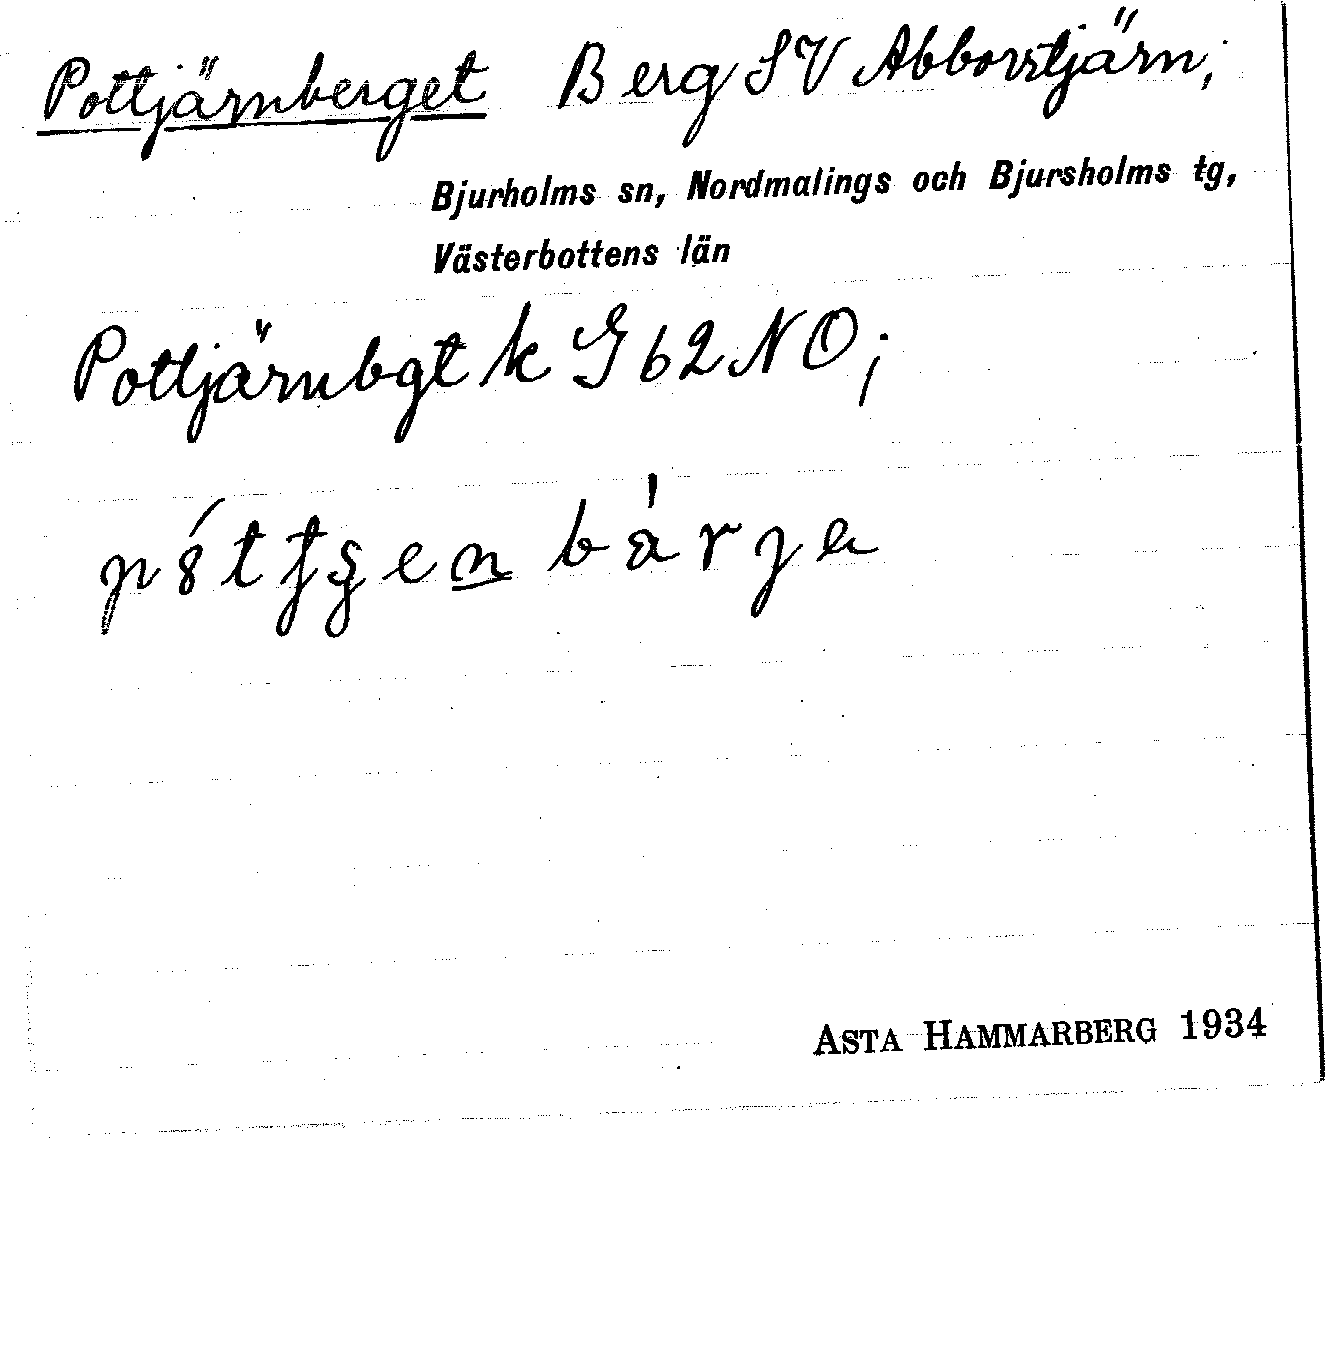 Pottjärnberget Berg SV Abborrtjärn,
Bjurholms sn, Nordmalings och Bjursholms tg,
Västerbottens län
Pottjärnbgt k G 62 NO;
Asta Hammarberg 1934